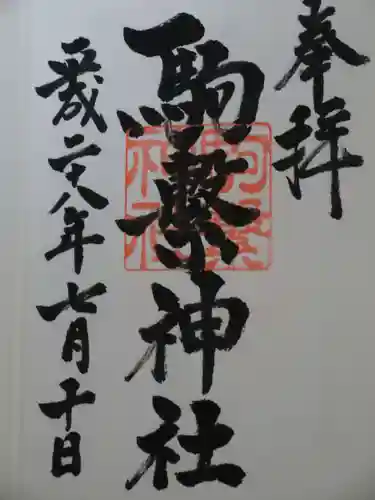 奉拝
駒繋神社
平成二十八年七月十日